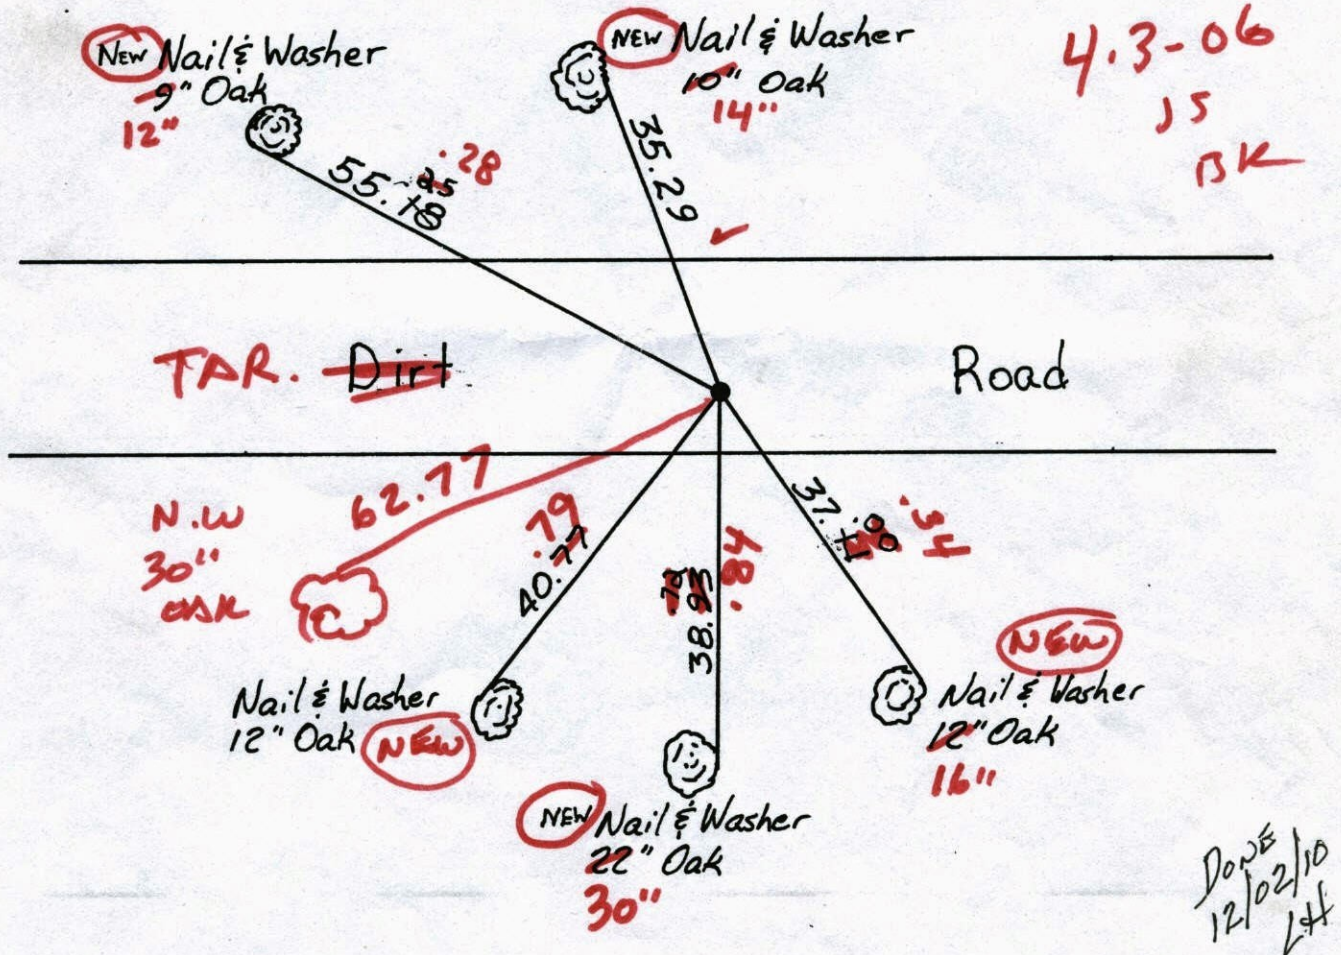 NEW Nail & Washer
9" Oak
12"
NEW Nail & Washer
10" Oak
14"
4.3-06
JS
BK
55.18
.25
.28
35.29
TAR. Dirt
Road
62.77
N.W
30"
OAK
.79
40.77
38.93
.72
.84
37.
.54
Nail & Washer
12" Oak NEW
NEW
Nail & Washer
12" Oak
16"
NEW Nail & Washer
22" Oak
30"
DONE
12/02/10
LH